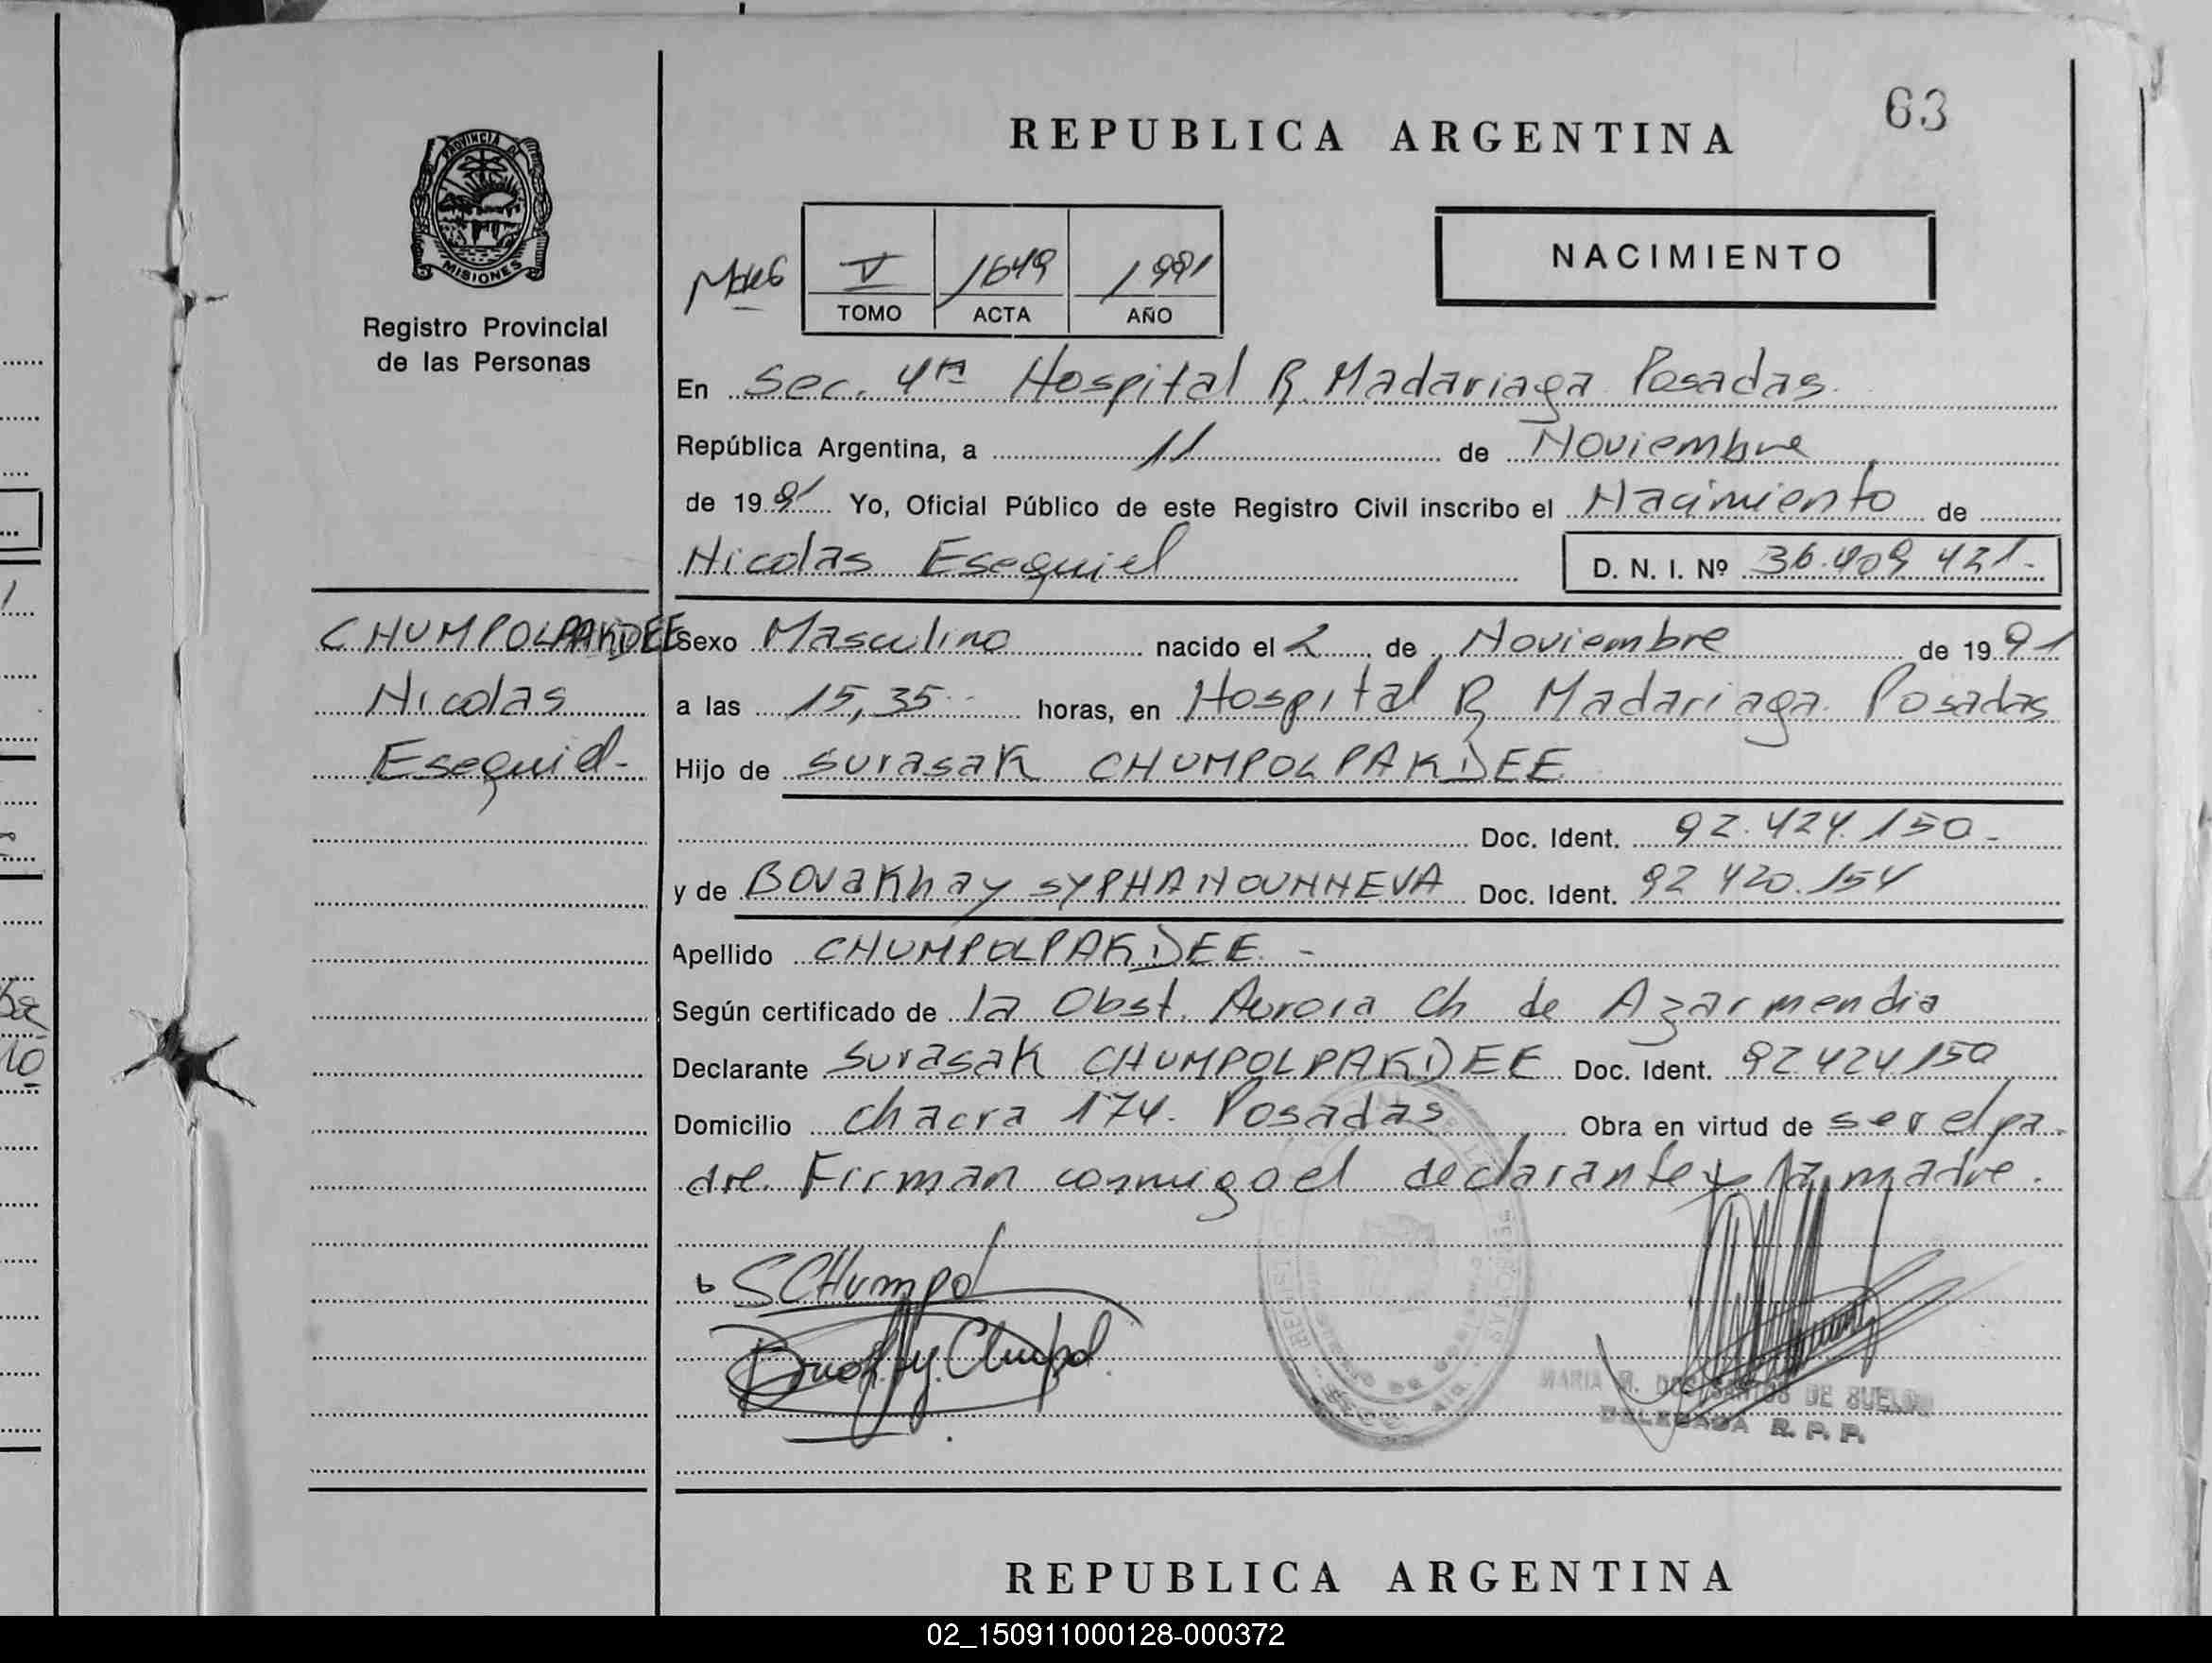 63
REPUBLICA ARGENTINA
PROVINCIA D
MISIONES
Registro Provincial
de las Personas
V 1649 1991
TOMO ACTA AÑO
NACIMIENTO
En Sec. 4ta Hospital R. Madariaga Posadas.
República Argentina, a 11 de Noviembre
de 1991 Yo, Oficial Público de este Registro Civil inscribo el Nacimiento de
Nicolas Esequiel D. N. I. Nº 36.409 421-
CHUMPOLPAKDEE
Nicolas
Esequiel-
Sexo Masculino nacido el 2 de Noviembre de 1991
a las 15,35 horas, en Hospital R Madariaga. Posadas
Hijo de Surasak CHUMPOLPAKDEE
Doc. Ident. 92.424.150-
y de Bovakhay SYPHANOUNNEVA Doc. Ident. 92 420.154
Apellido CHUMPOLPAKDEE. -
Según certificado de la Obst. Aurora Ch de Azarmendia
Declarante Surasak CHUMPOLPAKDEE Doc. Ident. 92 424 150
Domicilio chacra 174. Posadas Obra en virtud de ser el pa-
dre. Firman conmigo el declarante y la madre.
SCHumpol
MARIA R. DOS SANTOS DE
DELEGADA R. P. P.
REPUBLICA ARGENTINA
02_150911000128-000372